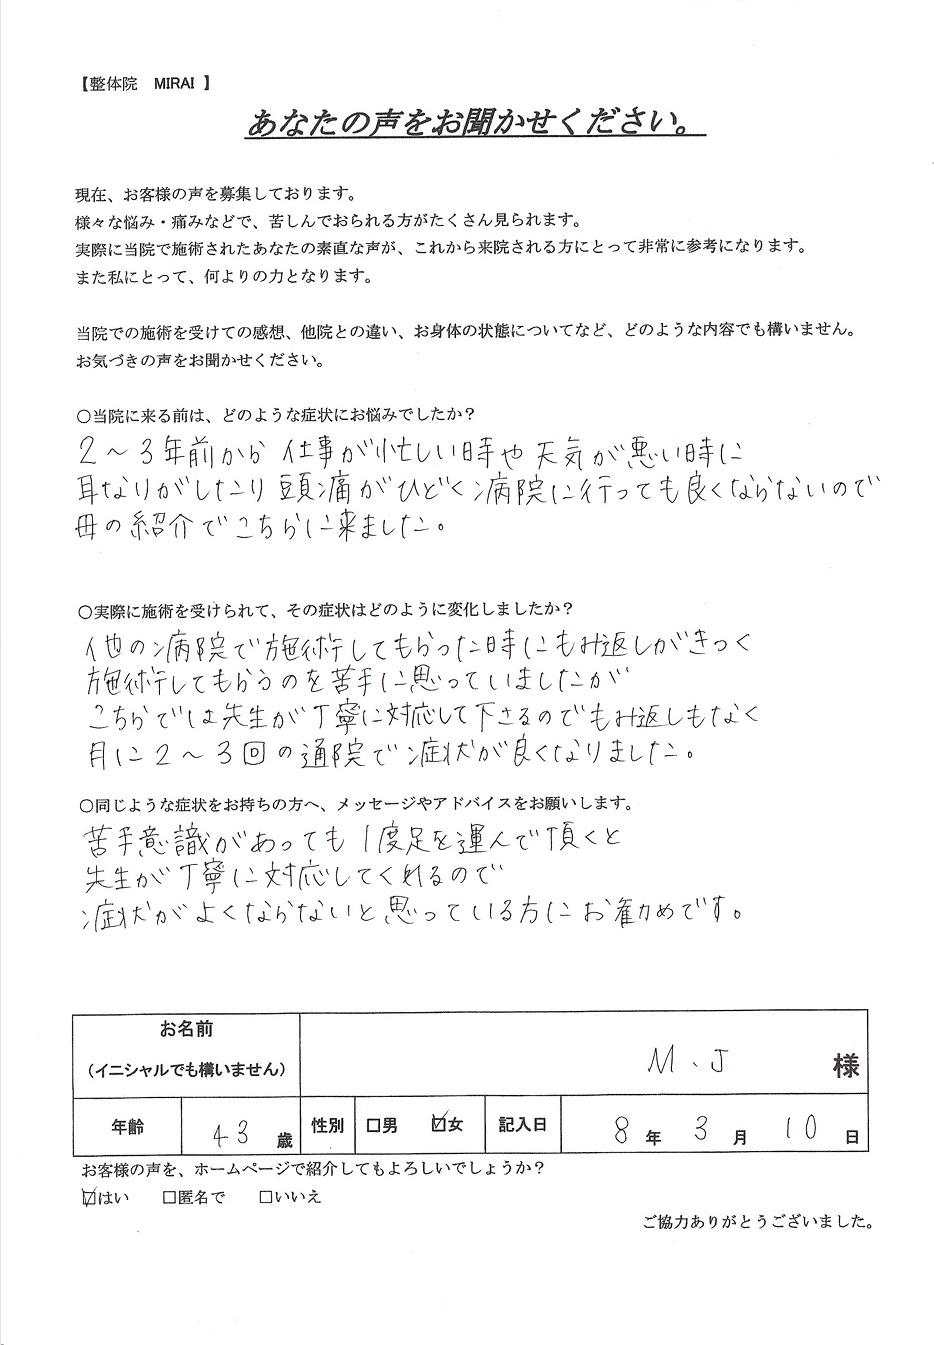 【整体院　MIRAI 】
あなたの声をお聞かせください。
現在、お客様の声を募集しております。
様々な悩み・痛みなどで、苦しんでおられる方がたくさん見られます。
実際に当院で施術されたあなたの素直な声が、これから来院される方にとって非常に参考になります。
また私にとって、何よりの力となります。
当院での施術を受けての感想、他院との違い、お身体の状態についてなど、どのような内容でも構いません。
お気づきの声をお聞かせください。
○当院に来る前は、どのような症状にお悩みでしたか？
2～3年前から 仕事が忙しい時や 天気が悪い時に
耳なりがしたり 頭痛がひどく 病院に行っても良くならないので
母の紹介でこちらに来ました。
○実際に施術を受けられて、その症状はどのように変化しましたか？
他の病院で施術してもらった時にもみ返しがきつく
施術してもらうのを苦手に思っていましたが
こちらでは先生が丁寧に対応して下さるのでもみ返しもなく
月に2～3回の通院で症状が良くなりました。
○同じような症状をお持ちの方へ、メッセージやアドバイスをお願いします。
苦手意識があっても 1度足を運んで頂くと
先生が丁寧に対応してくれるので
症状がよくならないと思っている方にお勧めです。
お名前
（イニシャルでも構いません）
M、J 様
年齢 43 歳 性別 □男 ☑女 記入日 8 年 3 月 10 日
お客様の声を、ホームページで紹介してもよろしいでしょうか？
☑はい　□匿名で　□いいえ
ご協力ありがとうございました。